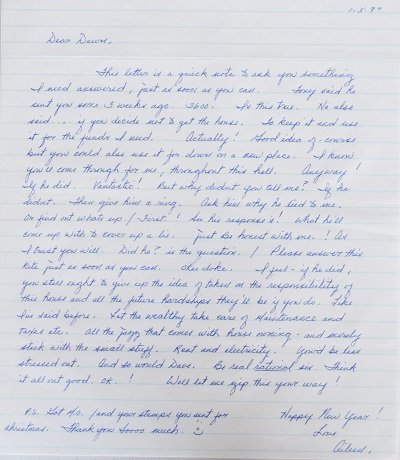 1-5-99
Dear Dawn,
This letter is a quick note to ask you something
I need answered, just as soon as you can. Tony said he
sent you some 3 weeks ago. 3600. Is this true. He also
said ... if you decide not to get the house. To keep it and use
it for the funds I need. Actually! Good idea of-course
but you could also use it for down on a new place. I know
you'll come through for me, throughout this hell. Anyway!
If he did. Vantastic! But why didnt you tell me? If he
didnt. Then give him a ring. Ask him why he lied to me.
Or find out whats up! First! See his response is! What he'll
come up with to cover up a lie. Just Be honest with me.! As
I trust you will. Did he? is the question. ! Please answer this
kite just as soon as you can. Okie doke. I feel - if he did,
you still ought to give up the idea of taken on the responsibility of
this house and all the future hardships they'll be if you do. Like
I've said before. Let the wealthy take care of maintenance and
taxes etc. All the jazz that comes with house owning - and merely
stick with the small stuff. Rent and electricity. You'd be less
stressed out. And so would Dave. Be real rational sis. Think
it all out good. OK.! Well let me zip this your way!
P.S. Got M/O. /and your stamps you sent for
christmas. Thank you Soooo much.
Happy New Year!
Love
Aileen.